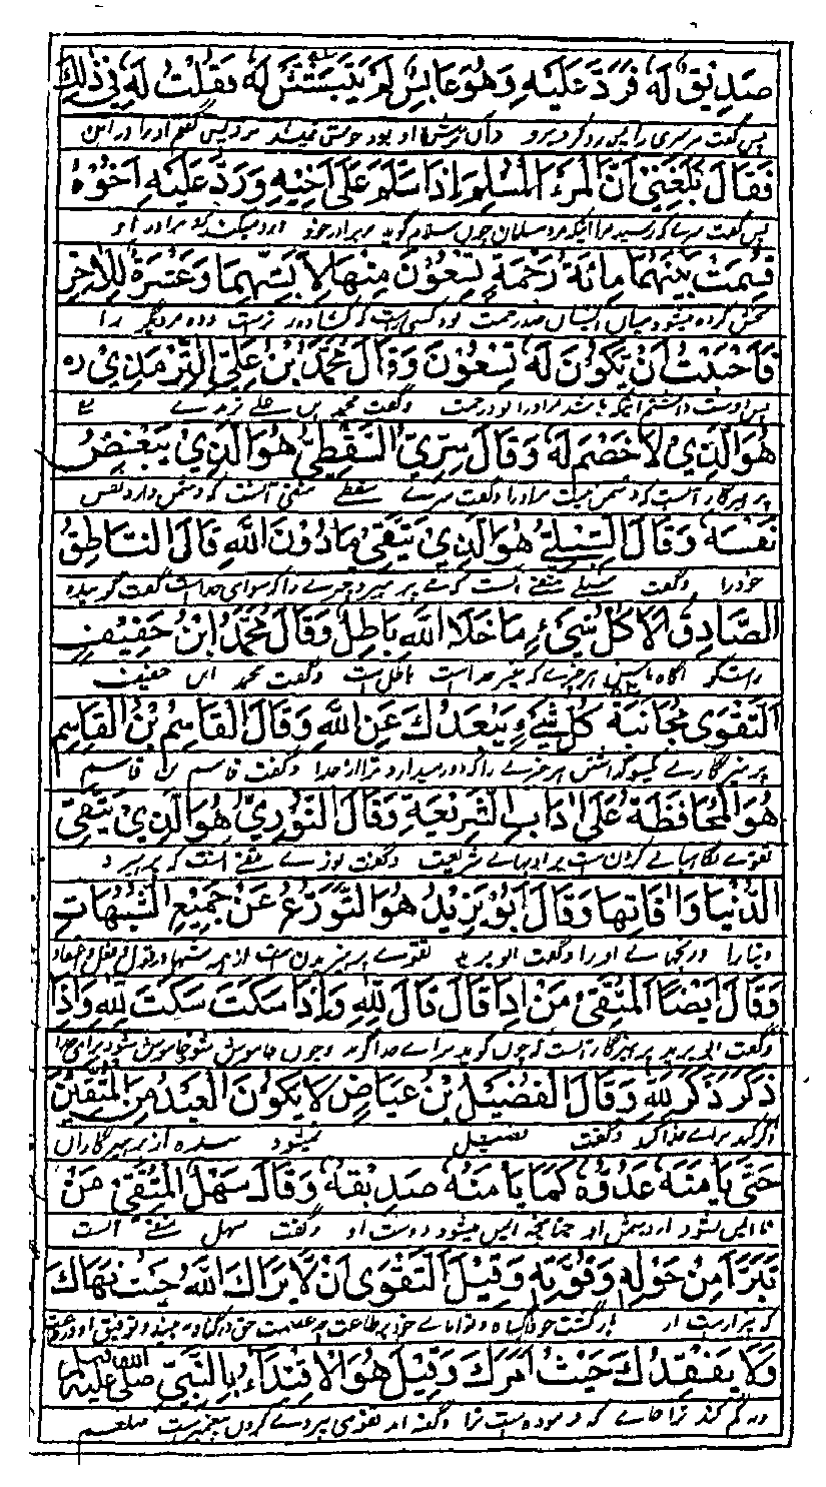 صَدِيقٌ لَهُ فَرَدَّ عَلَيْهِ وَهُوَ عَابِسٌ لَمْ يَتَبَشَّشْ لَهُ فَقُلْتُ لَهُ فِي ذٰلِكَ
پس گفت مر سری را پس رد کرد برو او بود
فَقَالَ بَلَغَنِي اَنَّ الْمَرْءَ الْمُسْلِمَ اِذَا سَلَّمَ عَلَى اَخِيْهِ وَرَدَّ عَلَيْهِ اَخُوْهُ
پس گفت رسید مرا اینکه مرد مسلمان چون سلام گوید بر برادر خود و رد میکند برادر او
قُسِمَتْ بَيْنَهُمَا مِائَةُ رَحْمَةٍ تِسْعُوْنَ مِنْهَا لِاَبَشِّهِمَا وَعَشَرَةٌ لِلْاٰخِرِ
بخش کرده میشود میان ایشان صد رحمت نود کسی راست که کشاده رو ترست و ده مر دیگر را
فَاَحْبَبْتُ اَنْ يَكُوْنَ لَهُ تِسْعُوْنَ وَقَالَ مُحَمَّدُ بْنُ عَلِيٍّ التِّرْمَذِيُّ رہ
پس دوست داشتم اینکه باشد مر او را نود رحمت وگفت محمد بن علے ترمذے
هُوَ الَّذِيْ لَا خَصْمَ لَهُ وَقَالَ سِرِّيُّ السَّقَطِيُّ هُوَ الَّذِيْ يَبْغَضُ
پرهیزگار آنست که دشمن نیست مر او را وگفت سرے سقطے متقی آنست که دشمن دارد نفس
نَفْسَهُ وَقَالَ الشِّبْلِيُّ هُوَ الَّذِيْ يَتَّقِيْ مَا دُوْنَ اللهِ قَالَ النَّاطِقُ
خود را وگفت شبلے متقے آنست که پرهیزد چیزے را که سوای خداست گفت گوینده
الصَّادِقُ اَلَا كُلُّ شَيْءٍ مَا خَلَا اللهَ بَاطِلٌ وَقَالَ مُحَمَّدُ ابْنُ خَفِيْفٍ
راست گو آگاه باش هر چیزے که غیر خداست باطل است وگفت محمد ابن خفیف
اَلتَّقْوٰى مُجَانَبَةُ كُلِّ شَيْءٍ يُبَعِّدُكَ عَنِ اللهِ وَقَالَ الْقَاسِمُ بْنُ الْقَاسِمِ
پرهیزگارے یکسو گذاشتن هر چیزے را که دور میدارد ترا از خدا وگفت قاسم بن قاسم
هُوَ الْمُحَافَظَةُ عَلَى اٰدَابِ الشَّرِيْعَةِ وَقَالَ النُّوْرِيُّ هُوَ الَّذِيْ يَتَّقِيْ
تقوے نگاهبانے کردن ست بر ادبهاے شریعت وگفت نورے متقے آنست که پرهیزد
الدُّنْيَا وَاٰفَاتِهَا وَقَالَ اَبُوْ يَزِيْدَ هُوَ التَّوَرُّعُ عَنْ جَمِيْعِ الشُّبُهَاتِ
دنیا را او را وگفت ابو یزید تقوے پرهیزیدن ست از همه شبهها
وَقَالَ اَيْضًا اَلْمُتَّقِيْ مَنْ اِذَا قَالَ قَالَ لِلّٰهِ وَاِذَا سَكَتَ سَكَتَ لِلّٰهِ وَاِذَا
وگفت ابو یزید پرهیزگار آنست که چون گوید براے خدا گوید وچون خاموش شود خاموش شود براے خدا
ذَكَرَ ذَكَرَ لِلّٰهِ وَقَالَ الْفُضَيْلُ بْنُ عِيَاضٍ لَا يَكُوْنُ الْعَبْدُ مِنَ الْمُتَّقِيْنَ
ذکر کند براے خدا کند وگفت فضیل نمیشود بنده از پرهیزگاران
حَتّٰى يَاْمَنَهُ عَدُوُّهُ كَمَا يَاْمَنُهُ صَدِيْقُهُ وَقَالَ سَهْلٌ الْمُتَّقِيْ مَنْ
تا ایمن شود از دشمن او چنانچه ایمن میشود دوست او وگفت سهل متقے آنست
تَبَرَّأَ مِنْ حَوْلِهِ وَقُوَّتِهِ وَقِيْلَ التَّقْوٰى اَنْ لَّا يَرَاكَ اللهُ حَيْثُ نَهَاكَ
که بیزارست از
وَلَا يَفْقِدُكَ حَيْثُ اَمَرَكَ وَقِيْلَ هُوَ الْاِقْتِدَاءُ بِالنَّبِيِّ صلى الله عليه وسلم
ونه گم کند ترا جاے که فرموده است ترا وگفته اند تقوی پیروے کردن پیغمبرست صلعم